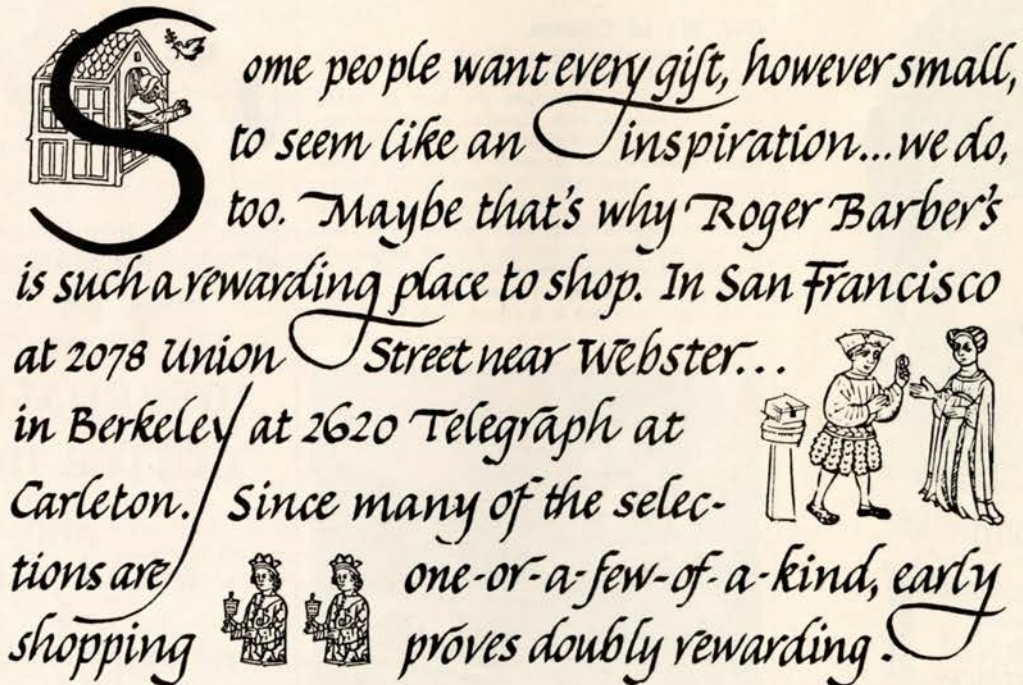 Some people want every gift, however small,
to seem like an inspiration...we do,
too. Maybe that's why Roger Barber's
is such a rewarding place to shop. In San Francisco
at 2078 Union Street near Webster...
in Berkeley at 2620 Telegraph at
Carleton. Since many of the selec-
tions are one-or-a-few-of-a-kind, early
shopping proves doubly rewarding.